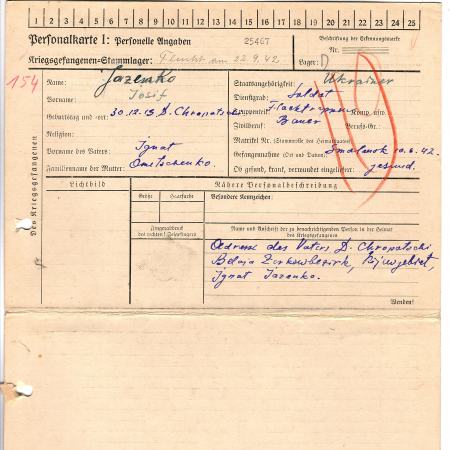 1 2 3 4 5 6 7 8 9 10 11 12 13 14 15 16 17 18 19 20 21 22 23 24 25
Personalkarte I: Personelle Angaben
25467
Beschriftung der Erkennungsmarke
Kriegsgefangenen-Stammlager: Flucht am 22.9.42
Nr.
Lager:
154
Des Kriegsgefangenen
Name: Jazenko
Staatsangehörigkeit: Ukrainer
Vorname: Josif
Dienstgrad: Soldat
Geburtstag und -ort: 30.12.13 D. Chropatschi
Truppenteil: Komp. usw.
Religion:
Zivilberuf: Bauer Berufs-Gr.:
Matrikel Nr. (Stammrolle des Heimatstaates)
Vorname des Vaters: Ignat
Gefangennahme (Ort und Datum): Smolensk 10.6.42.
Familienname der Mutter: Onetschenko.
Ob gesund, krank, verwundet eingeliefert: gesund.
Lichtbild
Nähere Personalbeschreibung
Größe
Haarfarbe
Besondere Kennzeichen:
Fingerabdruck
des rechten! Zeigefingers
Name und Anschrift der zu benachrichtigenden Person in der Heimat
des Kriegsgefangenen
Adresse des Vaters D. Chropatschi
Belaja Zerkowbezirk, Kijewgebiet,
Ignat Jazenko.
Wenden!